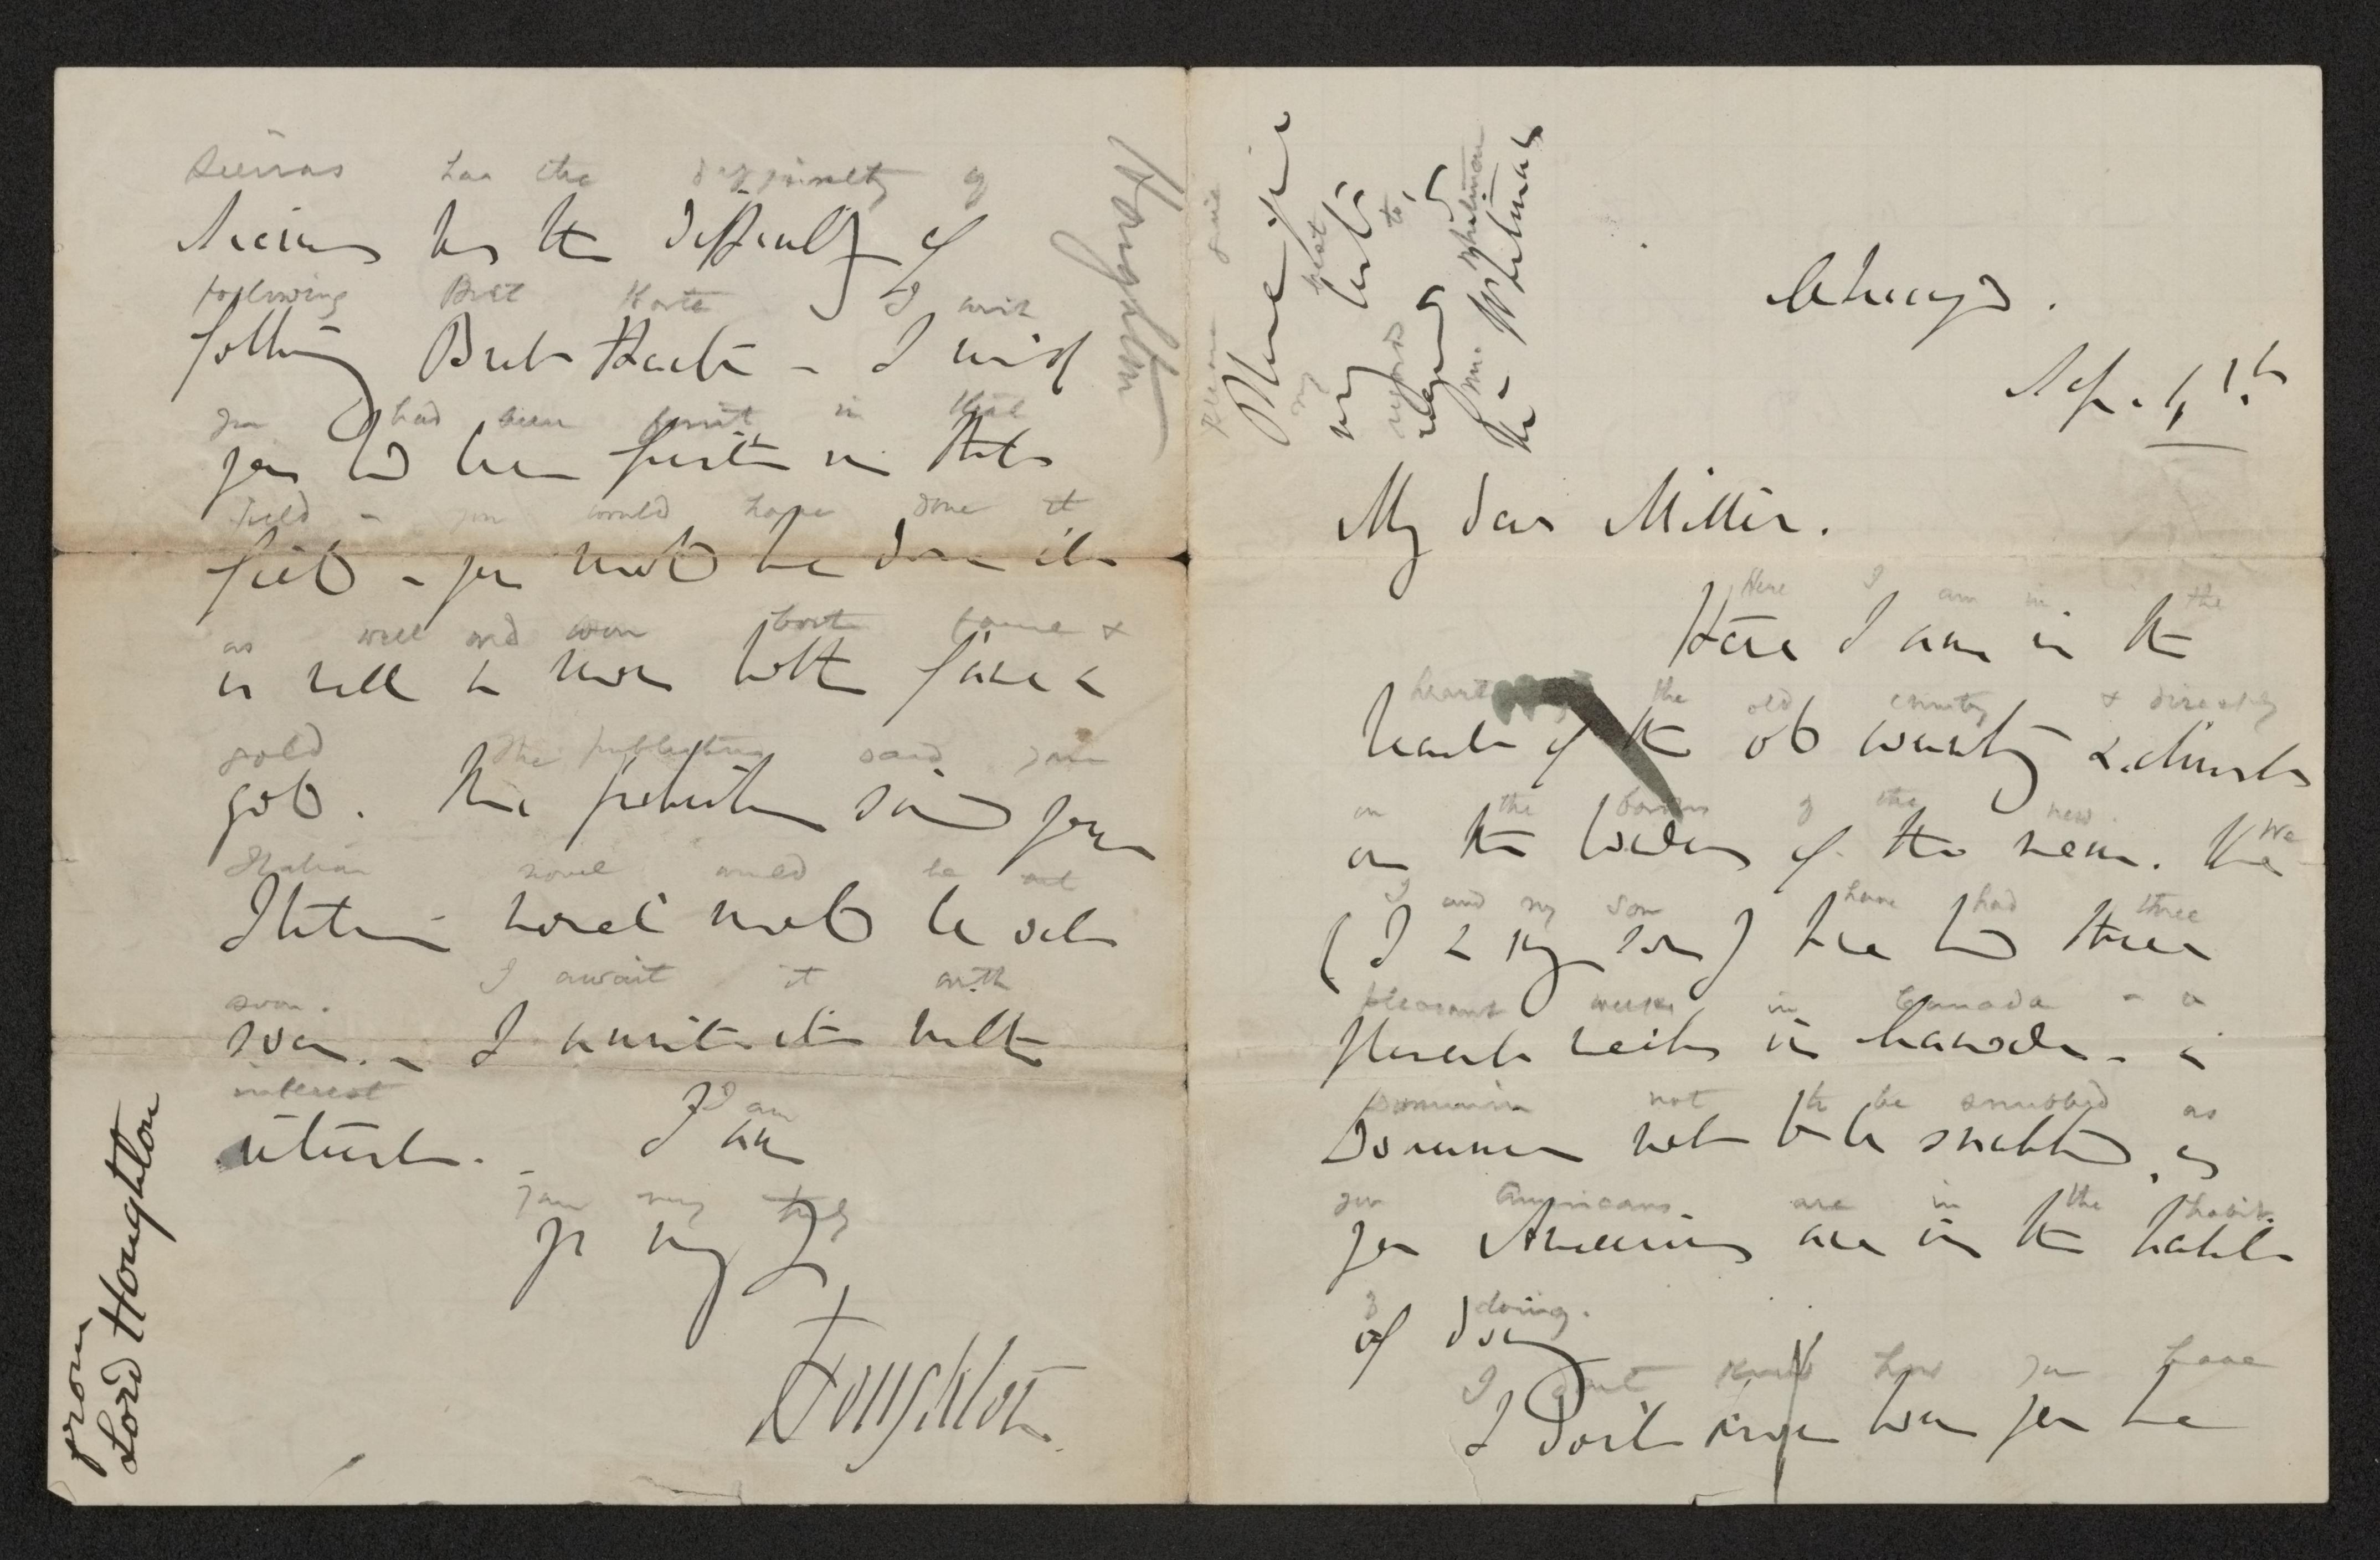 Chicago.
Sep. 6th
Please give
Please give
my best
my best
regards to
regards to
Mrs Whitman
Mrs Whitman
My dear Miller.
Here I am in the
Here I am in the
heart of the old country & directly
heart of the old country & directly
on the borders of the new. We
on the borders of the new. We
I and my son have had three
(I & my son) have had three
pleasant weeks in Canada - a
pleasant weeks in Canada - a
Dominion not to be snubbed as
Dominion not to be snubbed, as
you Americans are in the habit
you Americans are in the habit
of doing.
of doing
I dont know how you have
I don't know how you have
Sierras has the difficulty of
Sierras has the difficulty of
following Bret Harte I wish
following Bret Harte - I wish
you had been first in that
you had been first in that
field - you would have done it
field - you would have done it
as well and won both fame &
as well & won both fame &
gold The publisher said your
gold. The publisher said your
Italian novel would be out
Italian novel would be out
soon. I await it with
soon. - I await it with
interest I am
interest. I am
your very truly
yr very
Houghton
Houghton
From
Lord Houghton